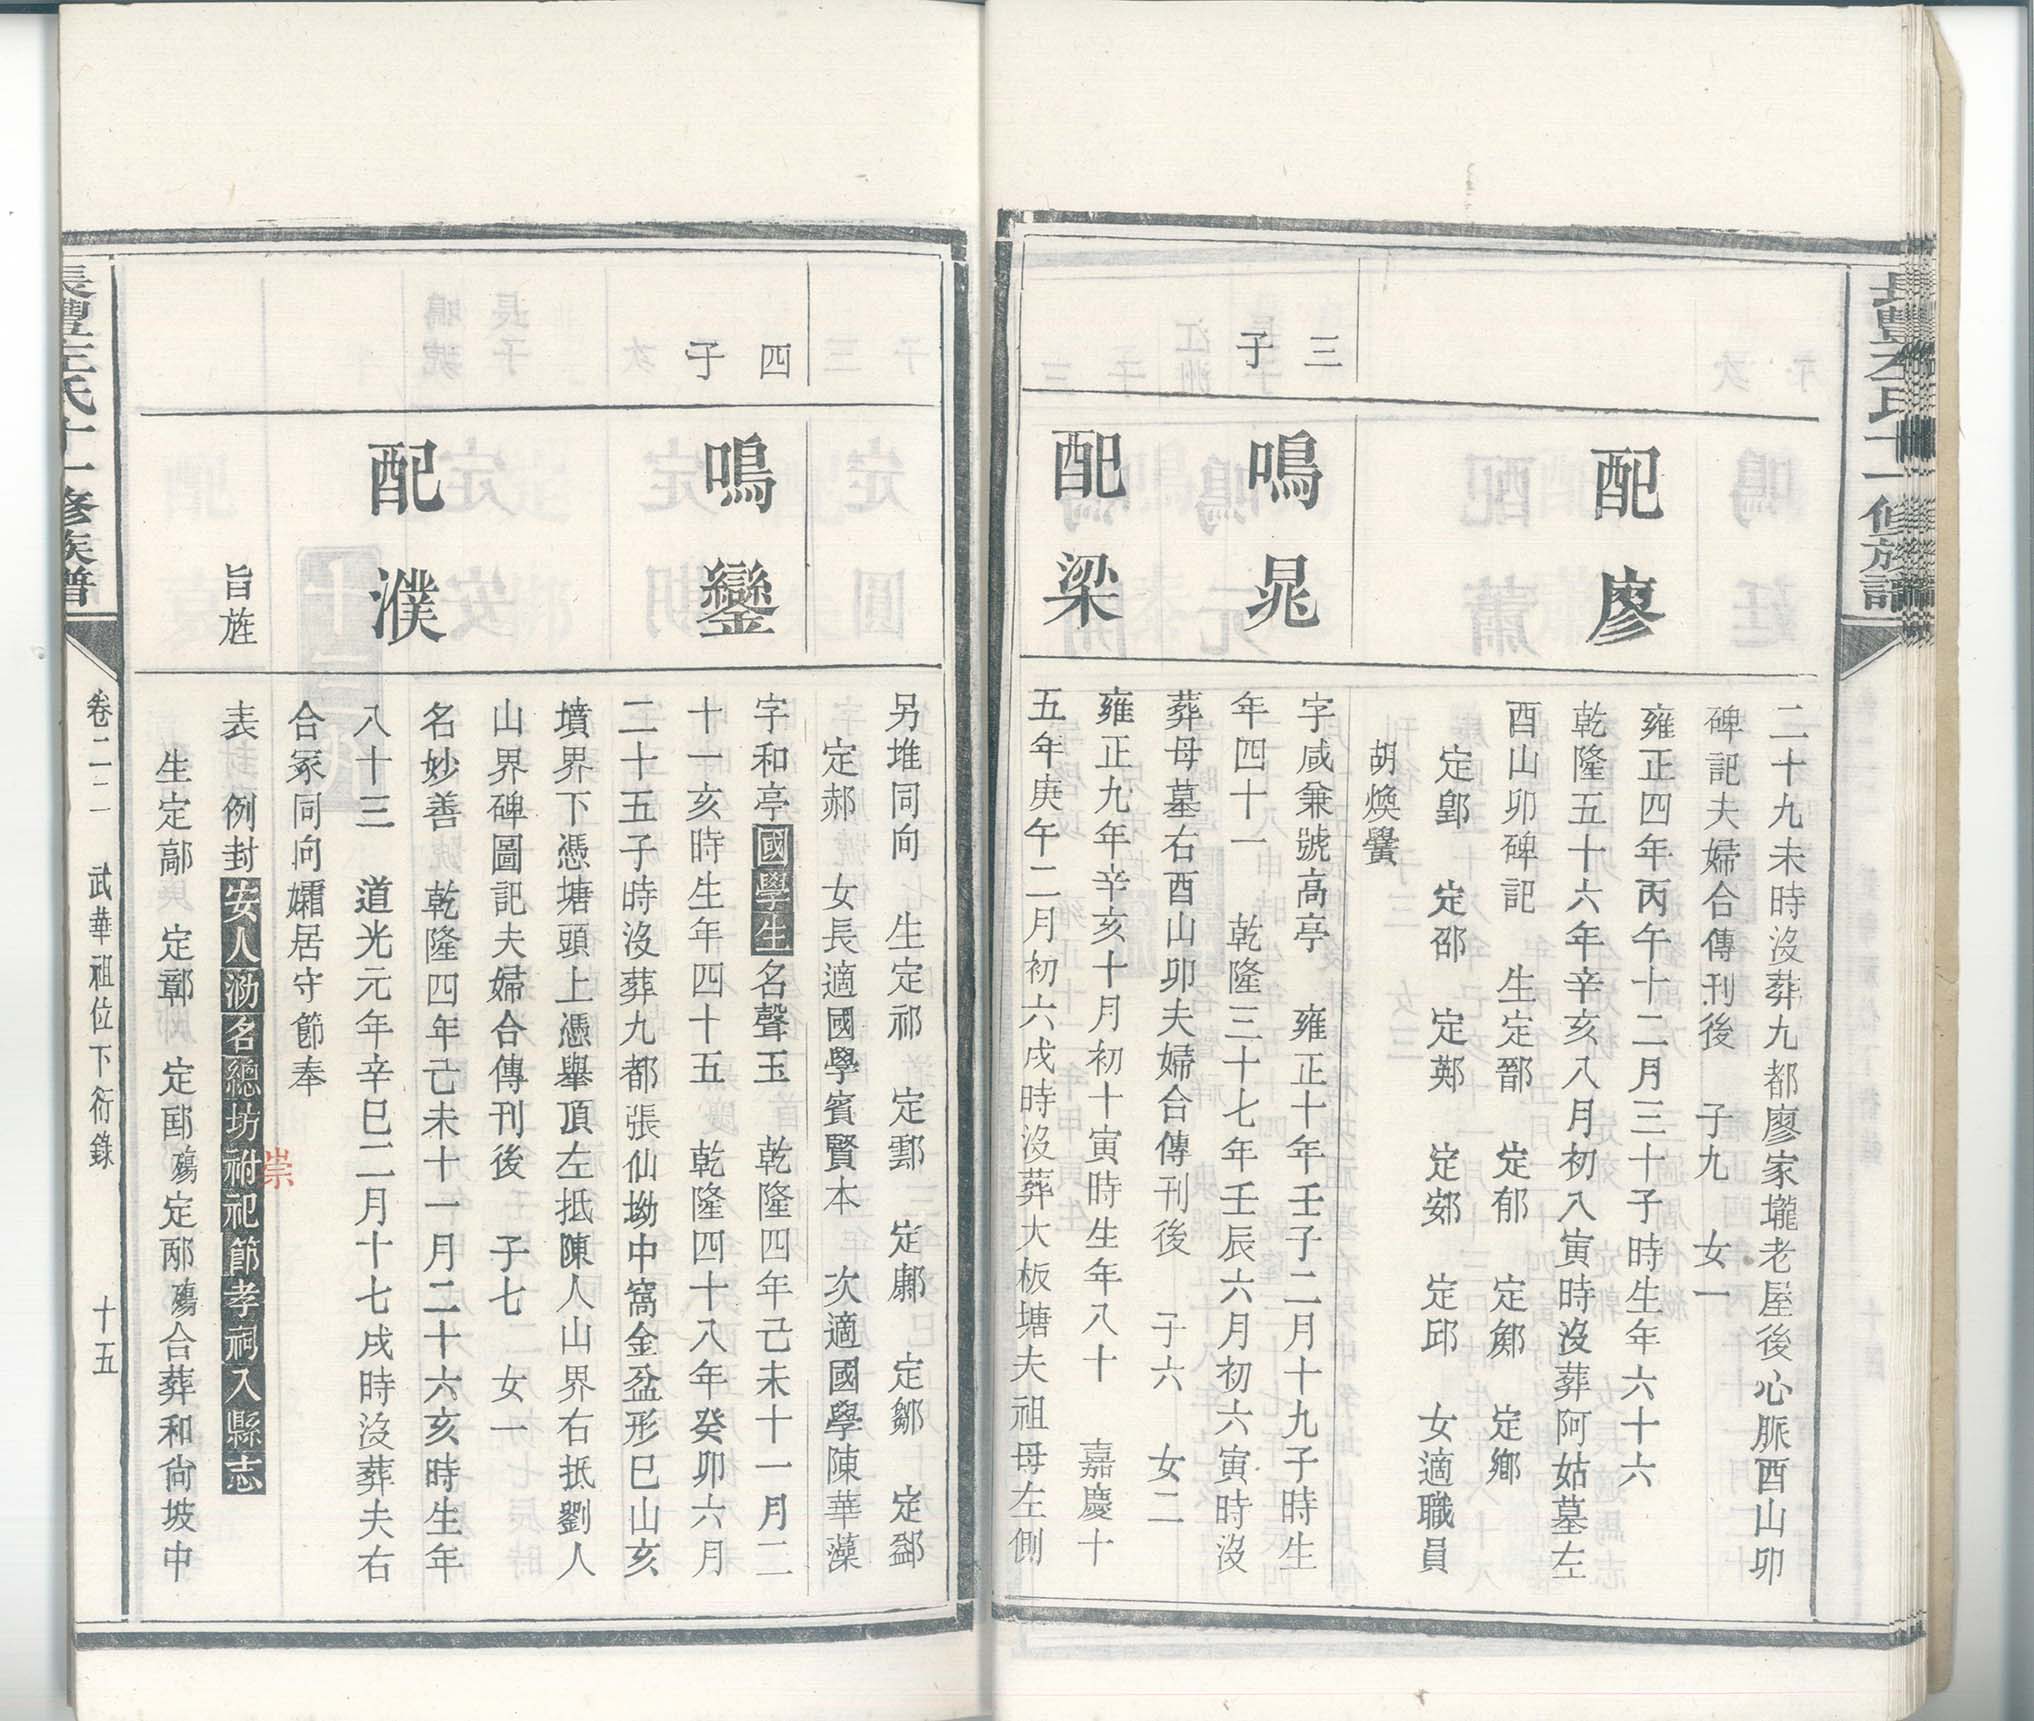 二十九未時沒葬九都廖家壠老屋後心脈酉山卯
碑記夫婦合傳刊後 子九 女一
配廖
雍正四年丙午十二月三十子時生年六十六
乾隆五十六年辛亥八月初八寅時沒葬阿姑墓左
酉山卯碑記 生定鄑 定郁 定鄭 定鄉
定鄓 定邵 定鄚 定郊 定邱 女適職員
胡煥黌
三子
鳴晁
字咸兼號高亭 雍正十年壬子二月十九子時生
年四十一 乾隆三十七年壬辰六月初六寅時沒
葬母墓右酉山卯夫婦合傳刊後 子六 女二
配梁
雍正九年辛亥十月初十寅時生年八十 嘉慶十
五年庚午二月初六戌時沒葬大板塘夫祖母左側
另堆同向 生定祁 定鄅 定鄘 定鄒 定鄧
定郝 女長適國學賓賢本 次適國學陳華藻
四子
鳴鑾
字和亭國學生名聲玉 乾隆四年己未十一月二
十一亥時生年四十五 乾隆四十八年癸卯六月
二十五子時沒葬九都張仙坳中窩金盆形巳山亥
墳界下憑塘頭上憑舉頂左抵陳人山界右抵劉人
山界碑圖記夫婦合傳刊後 子七 女一
配濮
名妙善 乾隆四年己未十一月二十六亥時生年
八十三 道光元年辛巳二月十七戌時沒葬夫右
合冢同向孀居守節奉
旨旌
表 例封安人泐名總坊祔祀節孝祠入縣志
崇
生定鄗 定鄣 定郖殤定邴殤合葬和尙坡中
卷二二 武華祖位下衍錄 十五